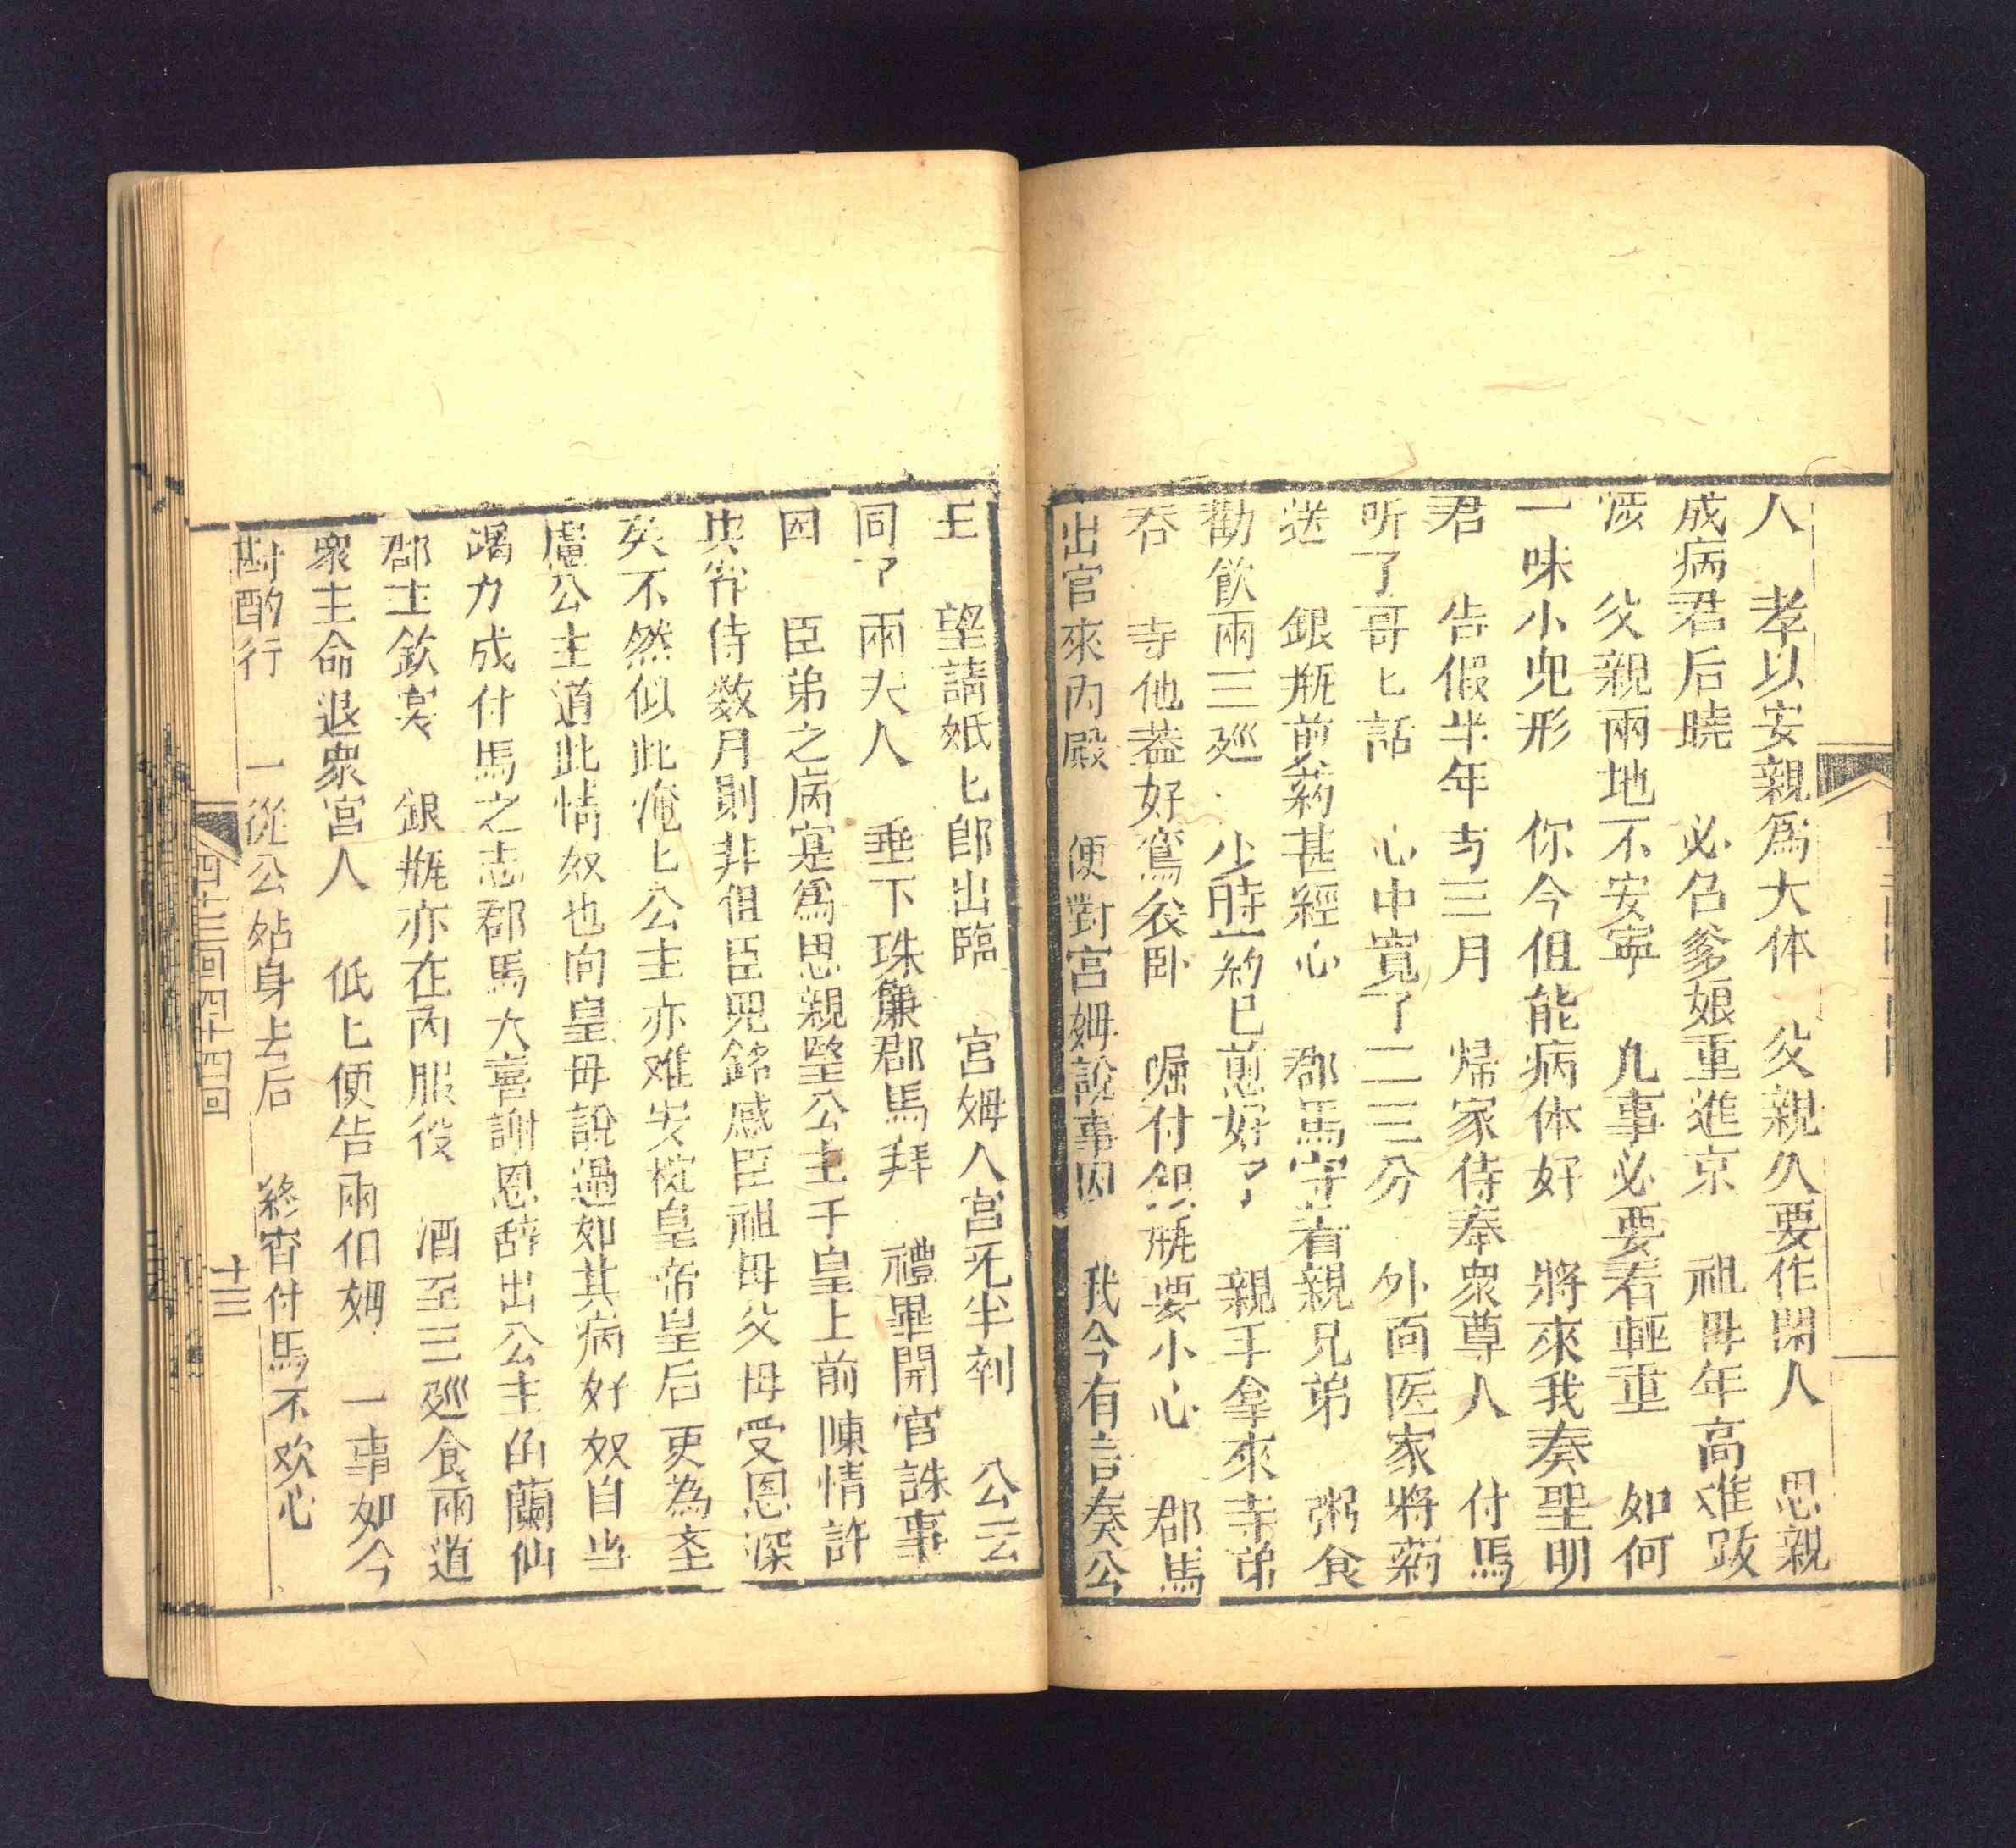 人　孝以安親爲大体　父親久要作閑人　思親
成病君后曉　必名爹娘重進京　祖毋年高难跋
涉　父親兩地不安寧　凢事必要看輕重　如何
一味小兒形　你今但能病体好　將來我奏聖明
君　告假半年㐂三月　帰家侍奉衆尊人　付馬
听了哥匕話　心中寬了二三分　外面医家將葯
送　銀瓶煎葯甚經心　郡馬守着親兄弟　粥食
勸飲兩三廵　少時葯已煎好了　親手拿來寺弟
吞　寺他蓋好鴛衾卧　囑付銀瓶要小心　郡馬
出宫來內殿　便對宮姆說事因　我今有言奏公
主　望請妧匕即出臨　宮姆入宮旡半刻　公云
同了兩夫人　垂下珠簾郡馬拜　禮畢開宫訴事
因　臣弟之病寔爲思親墾公主千皇上前陳情許
其省侍数月則非但臣兄銘感臣祖毋父毋受恩深
矣不然似此淹匕公主亦难安枕皇帝皇后更為奎
慮公主道此情奴也向皇毋說過如其病好奴自当
竭力成付馬之志郡馬大喜謝恩辞出公主的蘭仙
郡主欽賞　銀瓶亦在內服役　酒至三廵食兩道
衆主命退衆宮人　低匕便告兩伯姆　一事如今
斟酌行　一從公站身去后　終宵付馬不欢心
四十三回四十四回　十三